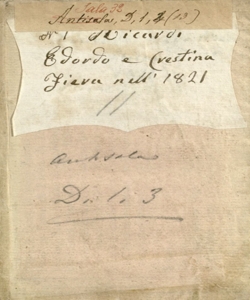 Sala 32
Antisala, D, 1, 3 (13)
N° 1 Ricardi
Edordo e Crestina
Fiera nell' 1821
11
antisala
D. 1. 3